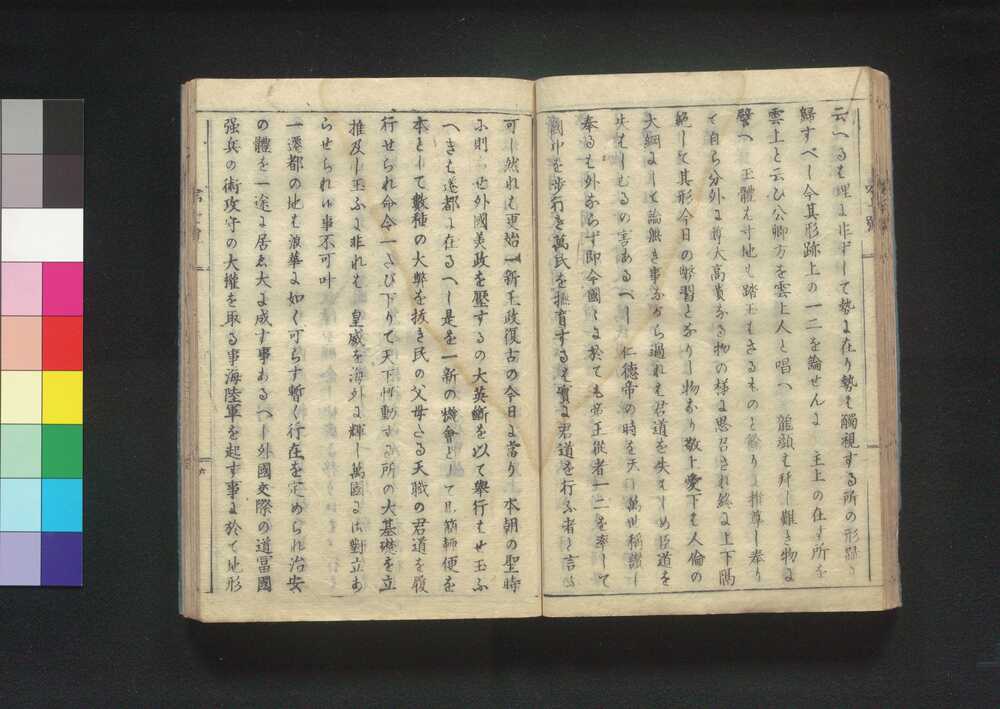 云へるも理に非ずして勢に在り勢も觸視する所の形跡に
歸すべし今其形跡上の一二を論せんに 主上の在す所を
雲上と云ひ公卿方を雲上人と唱へ 龍顔も拜し難き物に
譬へ 玉體も寸地も踏玉もさるものと餘りに推尊し奉り
て自ら分外に尊大高貴なる物の様に思召され終に上下隔
絶して其形今日の弊習となりし物なり敬上愛下も人倫の
大綱にして論無き事ながら過れも君道を失もしめ臣道を
失もしむるの害あるべし 仁德帝の時を天下萬世稱讃し
奉るも外ならず即今國々に於ても帝王從者一二を率して
國中を歩行き萬民を撫育するも實に君道を行ふ者と言
可し然れも更始一新王政復古の今日に當り 本朝の聖時
に則 せ外國美政を壓するの大英斷を以て舉行もせ玉ふ
へきも遷都に在るへし是を一新の機會として 簡輕便を
本として數種の大弊を拔き民の父母たる天職の君道を履
行せられ命令一たび下りて天下慴動する所の大基礎を立
推及し玉ふに非れも 皇威を海外に輝し萬國に 對立あ
らせられ 事不可叶
一遷都の地も浪華に如く可らす暫く行在を定められ治安
の體を一途に居ゑ大に成す事あるへし外國交際の道冨國
强兵の術攻守の大權を取る事海陸軍を起す事に於て地形
六